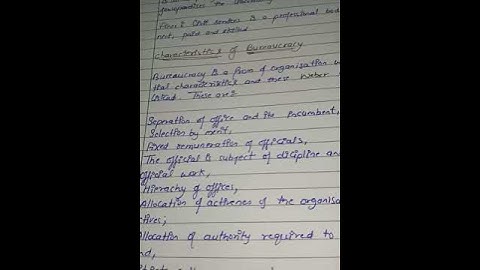 Finer : Civil service is a professional bod
nent, paid and skilled
Characteristics of Bureaucracy
Bureaucracy is a form of organisation w
tial characteristics and these Weber
listed. These are:
Sepration of office and its incumbent,
Selection by merit,
Fixed remuneration of officials,
The official is subject of dicipline an
official work,
Hirrachy of offices,
Allocation of activenes of the organisa
tives;
Allocation of authority required to
nd,